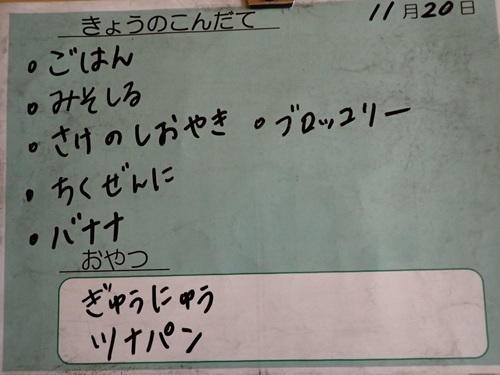 きょうのこんだて 11月20日
・ごはん
・みそしる
・さけのしおやき ・ブロッコリー
・ちくぜんに
・バナナ
おやつ
ぎゅうにゅう
ツナパン